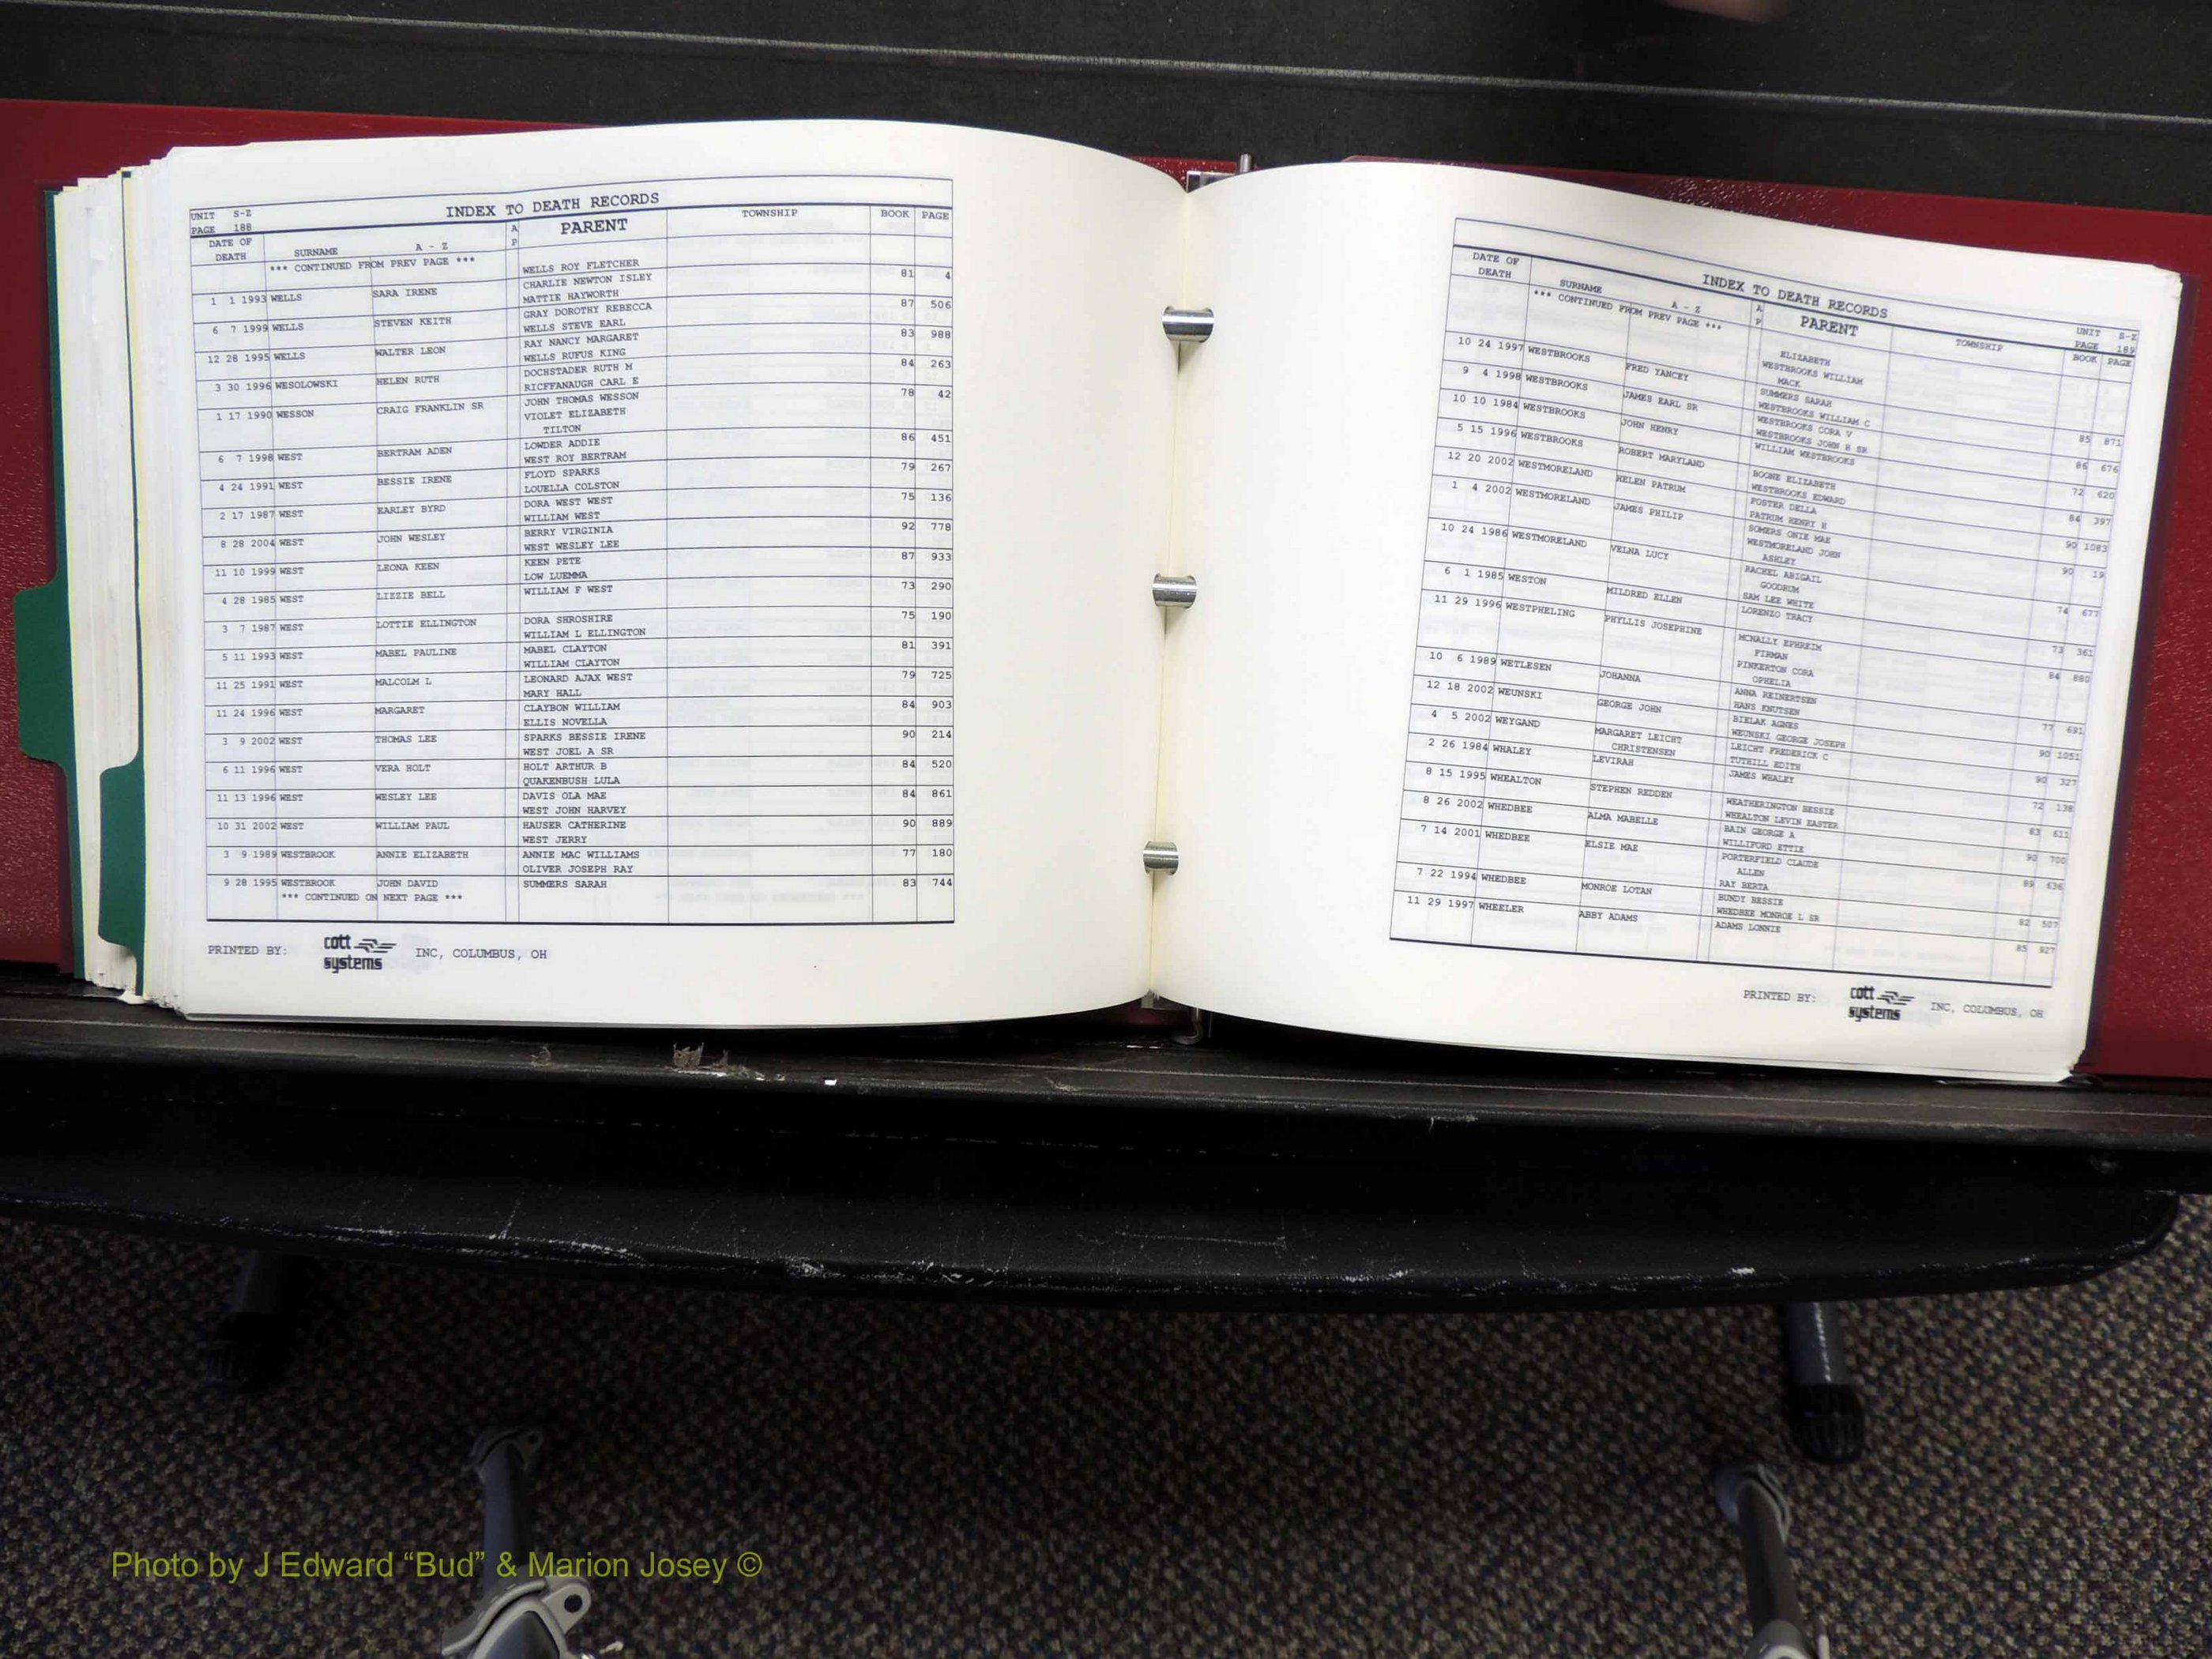 UNIT S-Z
PAGE 188
INDEX TO DEATH RECORDS
DATE OF DEATH SURNAME A - Z A P PARENT TOWNSHIP BOOK PAGE
*** CONTINUED FROM PREV PAGE ***
WELLS ROY FLETCHER
1 1 1993 WELLS SARA IRENE CHARLIE NEWTON ISLEY 81 4
MATTIE HAYWORTH
6 7 1999 WELLS STEVEN KEITH GRAY DOROTHY REBECCA 87 506
WELLS STEVE EARL
12 28 1995 WELLS WALTER LEON RAY NANCY MARGARET 83 988
WELLS RUFUS KING
3 30 1996 WESOLOWSKI HELEN RUTH DOCHSTADER RUTH M 84 263
RICFFANAUGH CARL E
1 17 1990 WESSON CRAIG FRANKLIN SR JOHN THOMAS WESSON 78 42
VIOLET ELIZABETH
TILTON
6 7 1998 WEST BERTRAM ADEN LOWDER ADDIE 86 451
WEST ROY BERTRAM
4 24 1991 WEST BESSIE IRENE FLOYD SPARKS 79 267
LOUELLA COLSTON
2 17 1987 WEST EARLEY BYRD DORA WEST WEST 75 136
WILLIAM WEST
8 28 2004 WEST JOHN WESLEY BERRY VIRGINIA 92 778
WEST WESLEY LEE
11 10 1999 WEST LEONA KEEN KEEN PETE 87 933
LOW LUEMMA
4 28 1985 WEST LIZZIE BELL WILLIAM F WEST 73 290
3 7 1987 WEST LOTTIE ELLINGTON DORA SHROSHIRE 75 190
WILLIAM L ELLINGTON
5 11 1993 WEST MABEL PAULINE MABEL CLAYTON 81 391
WILLIAM CLAYTON
11 25 1991 WEST MALCOLM L LEONARD AJAX WEST 79 725
MARY HALL
11 24 1996 WEST MARGARET CLAYBON WILLIAM 84 903
ELLIS NOVELLA
3 9 2002 WEST THOMAS LEE SPARKS BESSIE IRENE 90 214
WEST JOEL A SR
6 11 1996 WEST VERA HOLT HOLT ARTHUR B 84 520
QUAKENBUSH LULA
11 13 1996 WEST WESLEY LEE DAVIS OLA MAE 84 861
WEST JOHN HARVEY
10 31 2002 WEST WILLIAM PAUL HAUSER CATHERINE 90 889
WEST JERRY
3 9 1989 WESTBROOK ANNIE ELIZABETH ANNIE MAC WILLIAMS 77 180
OLIVER JOSEPH RAY
9 28 1995 WESTBROOK JOHN DAVID SUMMERS SARAH 83 744
*** CONTINUED ON NEXT PAGE ***
PRINTED BY: cott systems INC, COLUMBUS, OH
INDEX TO DEATH RECORDS
UNIT S-Z
PAGE 189
DATE OF DEATH SURNAME A - Z A P PARENT TOWNSHIP BOOK PAGE
*** CONTINUED FROM PREV PAGE ***
ELIZABETH
WESTBROOKS WILLIAM
MACK
10 24 1997 WESTBROOKS FRED YANCEY SUMMERS SARAH 85 871
WESTBROOKS WILLIAM C
9 4 1998 WESTBROOKS JAMES EARL SR WESTBROOKS CORA V 86 676
WESTBROOKS JOHN H SR
10 10 1984 WESTBROOKS JOHN HENRY WILLIAM WESTBROOKS 72 620
5 15 1996 WESTBROOKS ROBERT MARYLAND BOONE ELIZABETH 84 397
WESTBROOKS EDWARD
12 20 2002 WESTMORELAND HELEN PATRUM FOSTER DELLA 90 1083
PATRUM HENRY H
1 4 2002 WESTMORELAND JAMES PHILIP SOMERS ONIE MAE 90 19
WESTMORELAND JOHN
ASHLEY
10 24 1986 WESTMORELAND VELNA LUCY RACHEL ABIGAIL 74 677
GOODRUM
SAM LEE WHITE
6 1 1985 WESTON MILDRED ELLEN LORENZO TRACY 73 361
11 29 1996 WESTPHELING PHYLLIS JOSEPHINE MCNALLY EPHREIM 84 880
FIRMAN
PINKERTON CORA
OPHELIA
10 6 1989 WETLESEN JOHANNA ANNA REINERTSEN 77 691
HANS KNUTSEN
12 18 2002 WEUNSKI GEORGE JOHN BIELAK AGNES 90 1051
WEUNSKI GEORGE JOSEPH
4 5 2002 WEYGAND MARGARET LEICHT LEICHT FREDERICK C 90 327
CHRISTENSEN TUTHILL EDITH
2 26 1984 WHALEY LEVIRAH JAMES WHALEY 72 138
8 15 1995 WHEALTON STEPHEN REDDEN WEATHERINGTON BESSIE 83 611
WHEALTON LEVIN EASTER
8 26 2002 WHEDBEE ALMA MABELLE BAIN GEORGE A 90 700
WILLIFORD ETTIE
7 14 2001 WHEDBEE ELSIE MAE PORTERFIELD CLAUDE 89 636
ALLEN
RAY BERTA
7 22 1994 WHEDBEE MONROE LOTAN BUNDY BESSIE 82 507
WHEDBEE MONROE L SR
11 29 1997 WHEELER ABBY ADAMS ADAMS LONNIE 85 927
PRINTED BY: cott systems INC, COLUMBUS, OH
Photo by J Edward “Bud” & Marion Josey ©